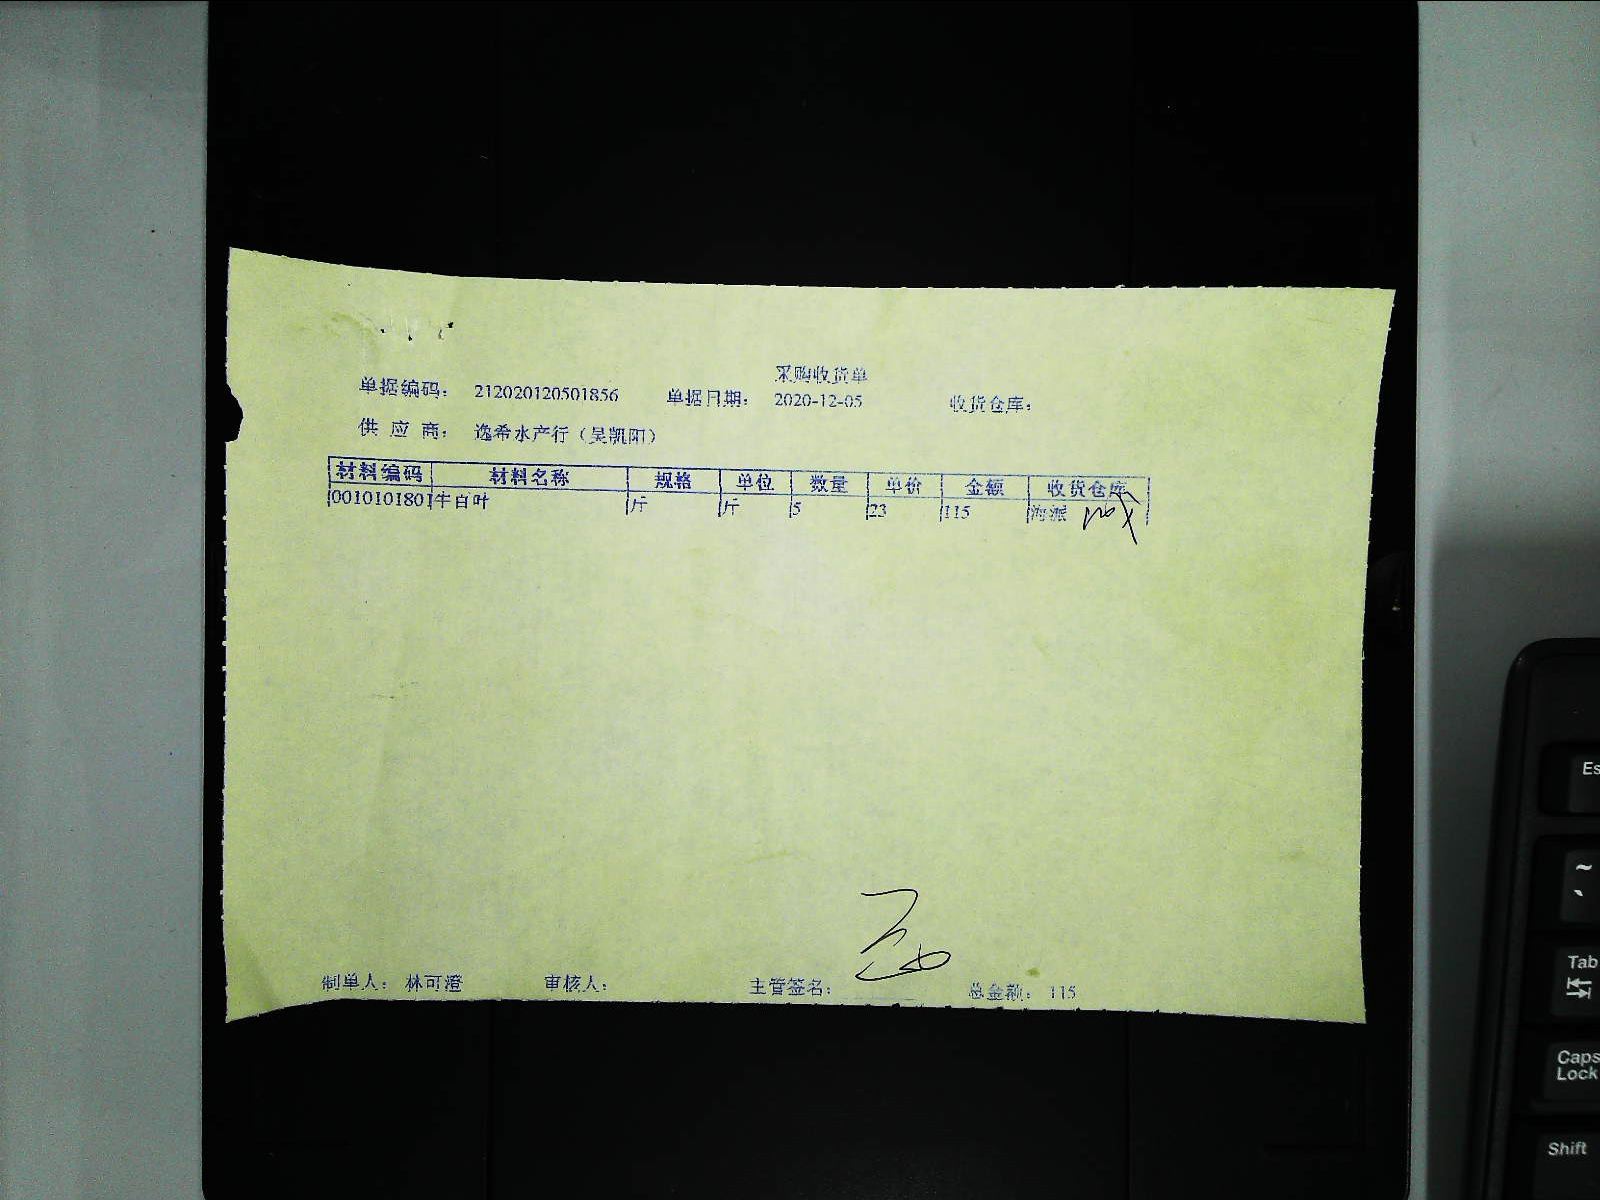 采购收货单
单据编码： 212020120501856 单据日期： 2020-12-05 收货仓库：
供 应 商： 逸希水产行（吴凯阳）
材料编码 材料名称 规格 单位 数量 单价 金额 收货仓库
0010101801 牛白叶 斤 斤 5 23 115 海派
制单人： 林可澄 审核人： 主管签名： 总金额： 115
Es
~
Tab
Caps
Lock
Shift